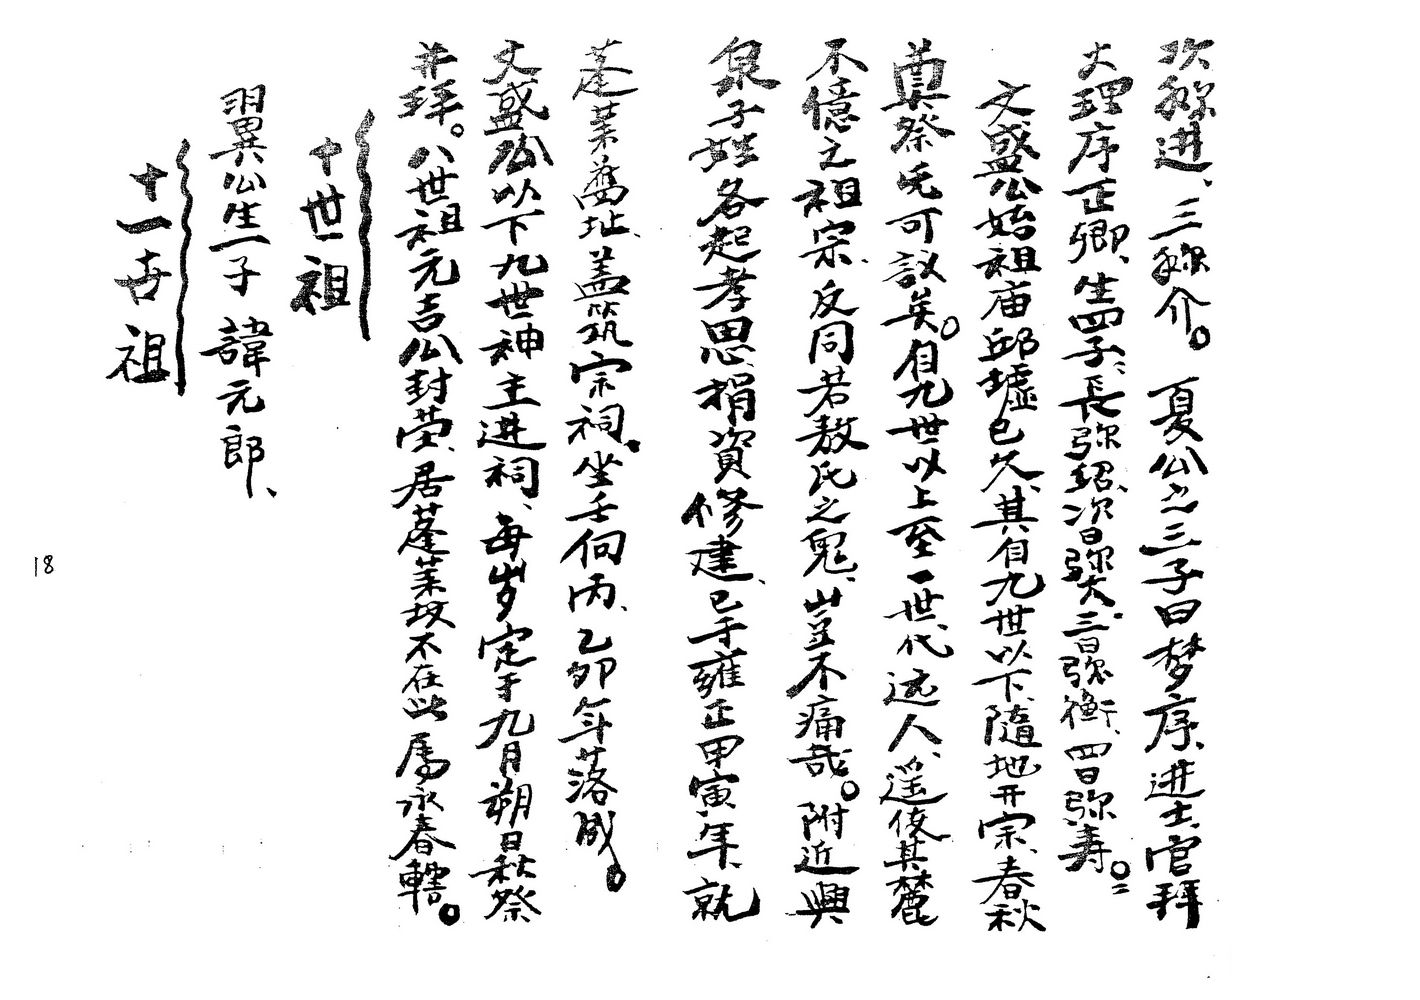 次弥进、三弥介。夏公之三子曰梦序、进士、官拜
大理序正卿、生四子、長弥招、次曰弥大、三曰弥衡、四曰弥寿。
文盛公始祖庙邱墟已久、其自九世以下、隨地开宗、春秋
奠祭无可议矣。自九世以上至一世、代远人遥、倘其
不億之祖宗、反同若敖氏之鬼、岂不痛哉。附近興
泉子姓各起孝思、捐資修建、已于雍正甲寅年、就
蓬莱舊址、盖筑宗祠、坐壬向丙、乙卯年落成。
文盛公以下九世神主进祠、每岁定于九月朔日秋祭
并拜。八世祖元吉公封茔、居蓬莱坂不在此、属永春轄。
十世祖
翼公生一子 諱元郎、
十一世祖
18